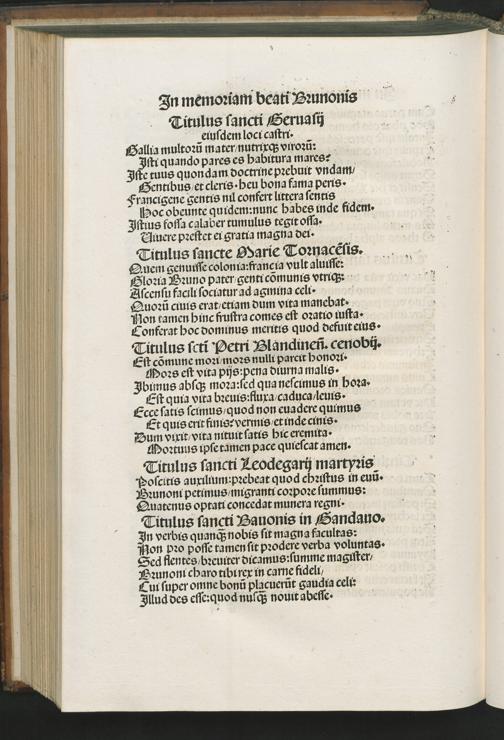 In memoriam beati Brunonis
Titulus sancti Geruasij
eiusdem loci castri.
Gallia multorū mater/nutrixqȝ virorū:
Isti quando pares es habitura mares?
Iste tuus quondam doctrine prebuit vndam/
Gentibus/et cleris. heu bona fama peris.
Francigene gentis nil confert littera sentis
Hoc obeunte quidem:nunc habes inde fidem.
Istius fossa calaber tumulus tegit ossa.
Viuere prestet ei gratia magna dei.
Titulus sancte Marie Tornacēsis.
Quem genuisse colonia:francia vult aluisse:
Gloria Bruno pater genti cōmunis vtriqȝ:
Ascensu facili sociatur ad agmina celi.
Quorū ciuis erat/etiam dum vita manebat.
Non tamen hinc frustra comes est oratio iusta.
Conferat hoc dominus meritis quod defuit eius.
Titulus scti Petri Blandineñ. cenobij.
Est cōmune mori/mors nulli parcit honori.
Mors est vita pijs:pena diurna malis.
Ibimus absqȝ mora:sed qua nescimus in hora.
Est quia vita breuis:fluxa/caduca/leuis.
Ecce satis scimus/quod non euadere quimus
Et quis erit finis?vermis/et inde cinis.
Dum vixit/vita nituit satis hic eremita.
Mortuus ipse tamen pace quiescat amen.
Titulus sancti Leodegarij martyris
Poscitis auxilium:prebeat quod christus in euū.
Brunoni petimus/migranti corpore summus:
Quatenus optati concedat munera regni.
Titulus sancti Bauonis in Gandauo.
In verbis quanqȝ nobis sit magna facultas:
Non pro posse tamen sit prodere verba voluntas.
Sed flentes/breuiter dicamus:summe magister/
Brunoni charo tibi rex in carne fideli/
Cui super omne bonū placuerūt gaudia celi:
Illud des esse:quod nusqȝ nouit abesse.